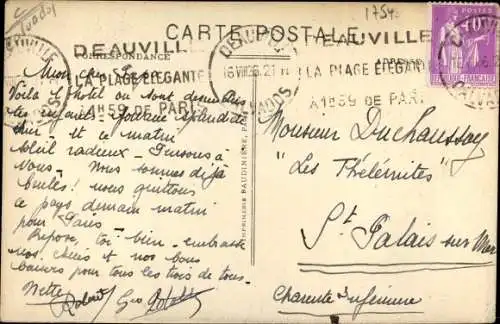 Calvados
1754
CARTE POSTALE
CORRESPONDANCE
DEAUVILLE
LA PLAGE ÉLÉGANTE
A 1H59 DE PARIS
DEAUVILLE
LA PLAGE ÉLÉGANTE
A 1H59 DE PARIS
ADRESSE
POSTES
RÉPUBLIQUE FRANÇAISE
CALVADOS
Mon cher
Voilà l'hôtel où sont
les enfants -
hier - et ce matin
soleil radieux - Pensons à
vous - Nous sommes déjà
brulés! nous quittons
ce pays demain matin
pour Paris -
Repose toi bien - embrasse
nos chéries et nos bons
baisers pour tous les trois de tous.
Robert Geo
IMPRIMERIE BAUDINIÈRE, PARIS
Monsieur Duchaussoy
"Les Thélémites"
St Palais sur Mer
Charente Inférieure